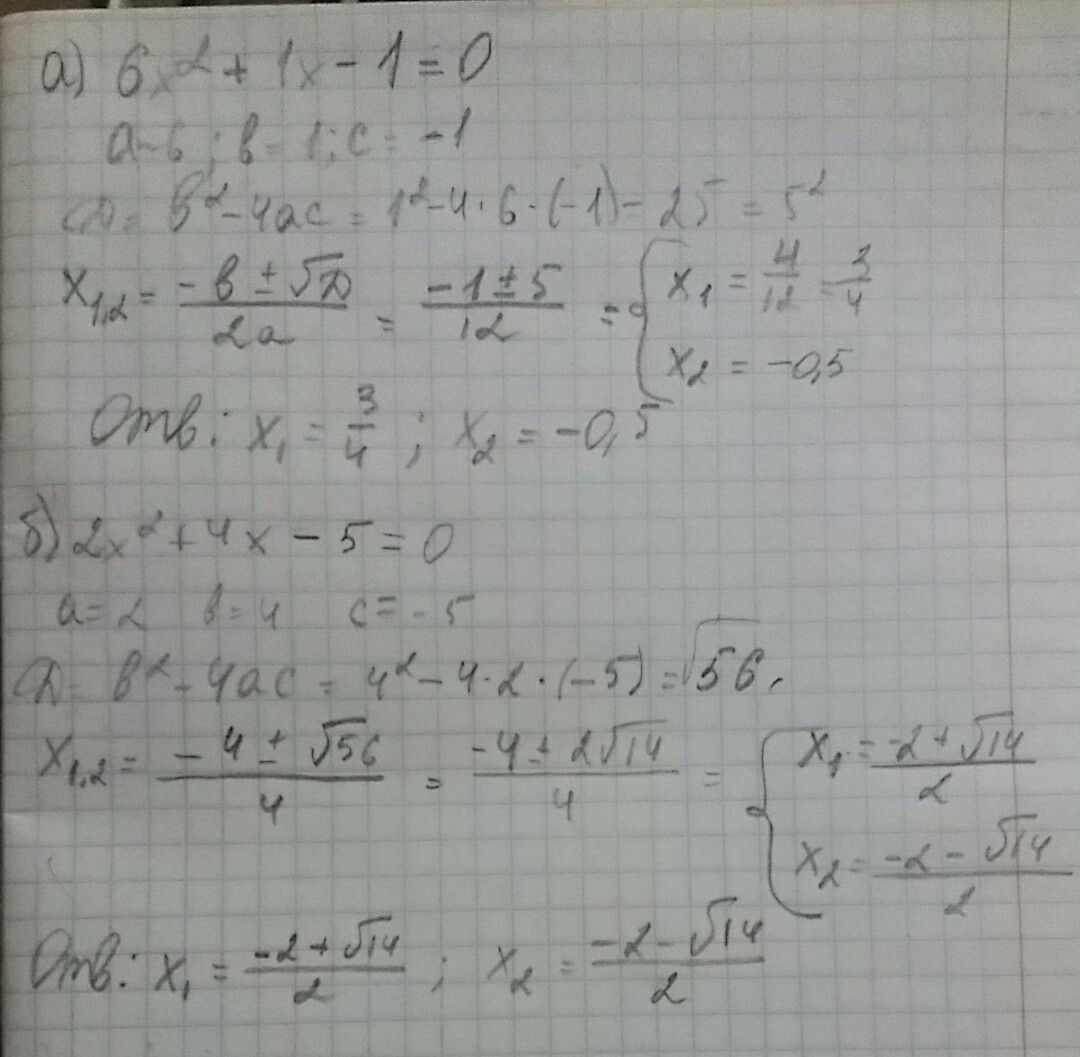 а) 6x² + 1x - 1 = 0
a=6; b=1; c = -1
D = b² - 4ac = 1² - 4·6·(-1) = 25 = 5²
x₁,₂ = (-b ± √D)/(2a) = (-1 ± 5)/12 = { x₁ = 4/12 = 3/4
x₂ = -0,5
Отв: x₁ = 3/4 ; x₂ = -0,5
б) 2x² + 4x - 5 = 0
a = 2 b = 4 c = -5
D = b² - 4ac = 4² - 4·2·(-5) = √56,
x₁,₂ = (-4 ± √56)/4 = (-4 ± 2√14)/4 = { x₁ = (-2 + √14)/2
x₂ = (-2 - √14)/2
Отв: x₁ = (-2 + √14)/2 ; x₂ = (-2 - √14)/2